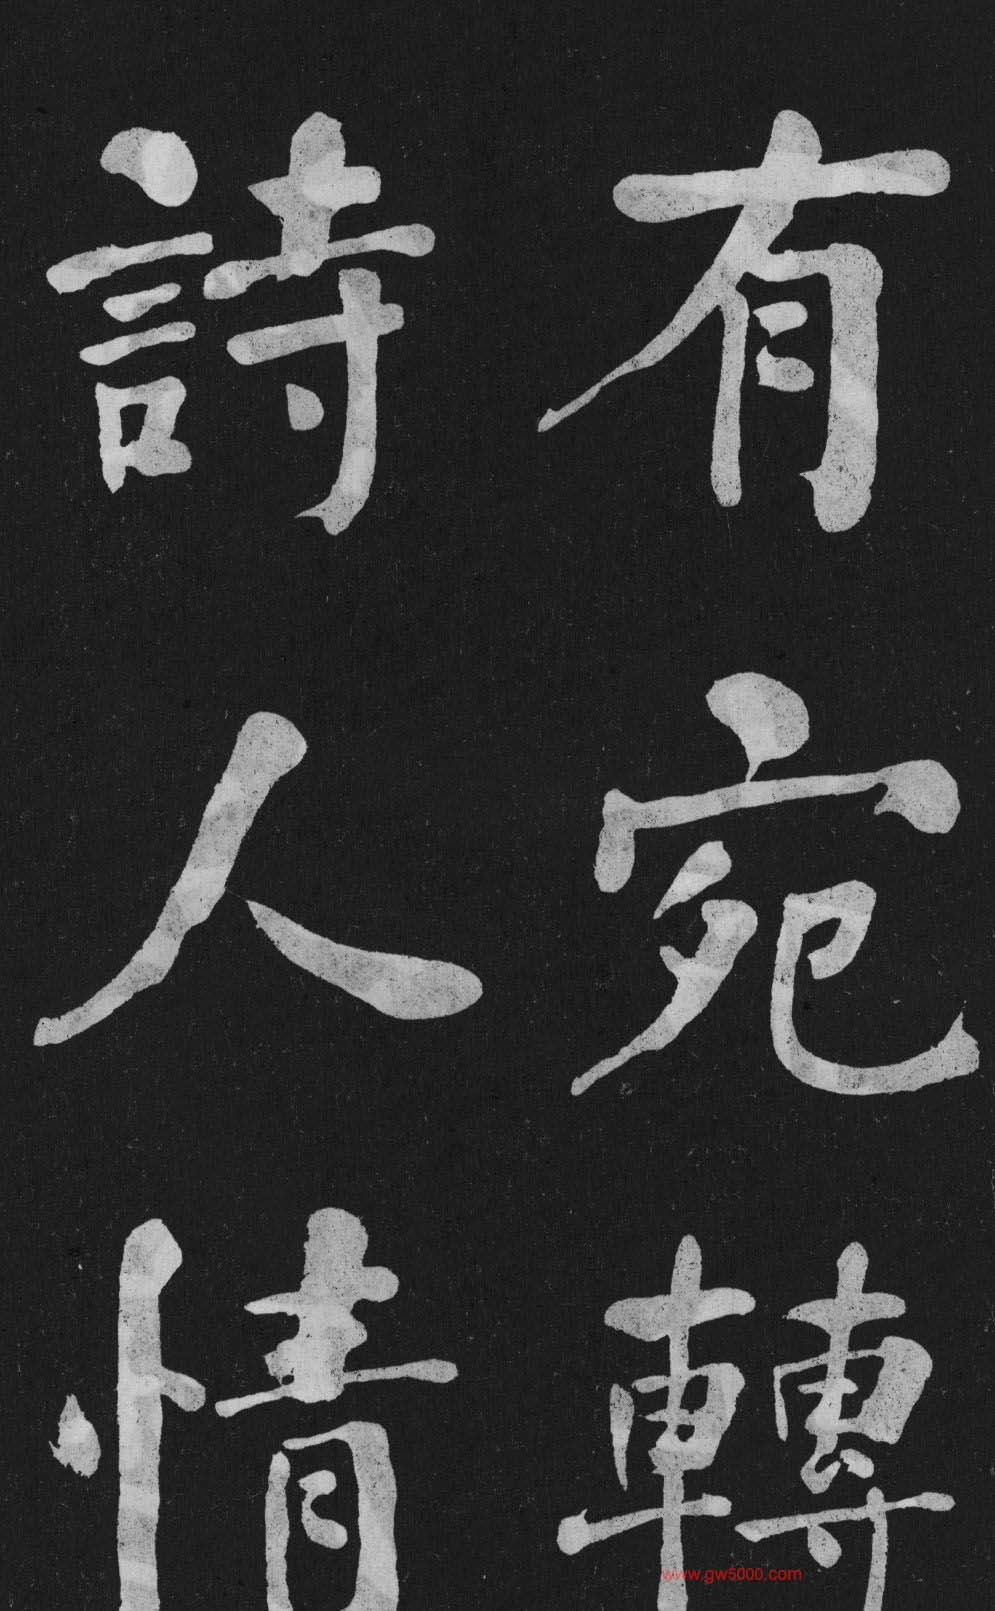 有宛轉
詩人情
www.gw5000.com